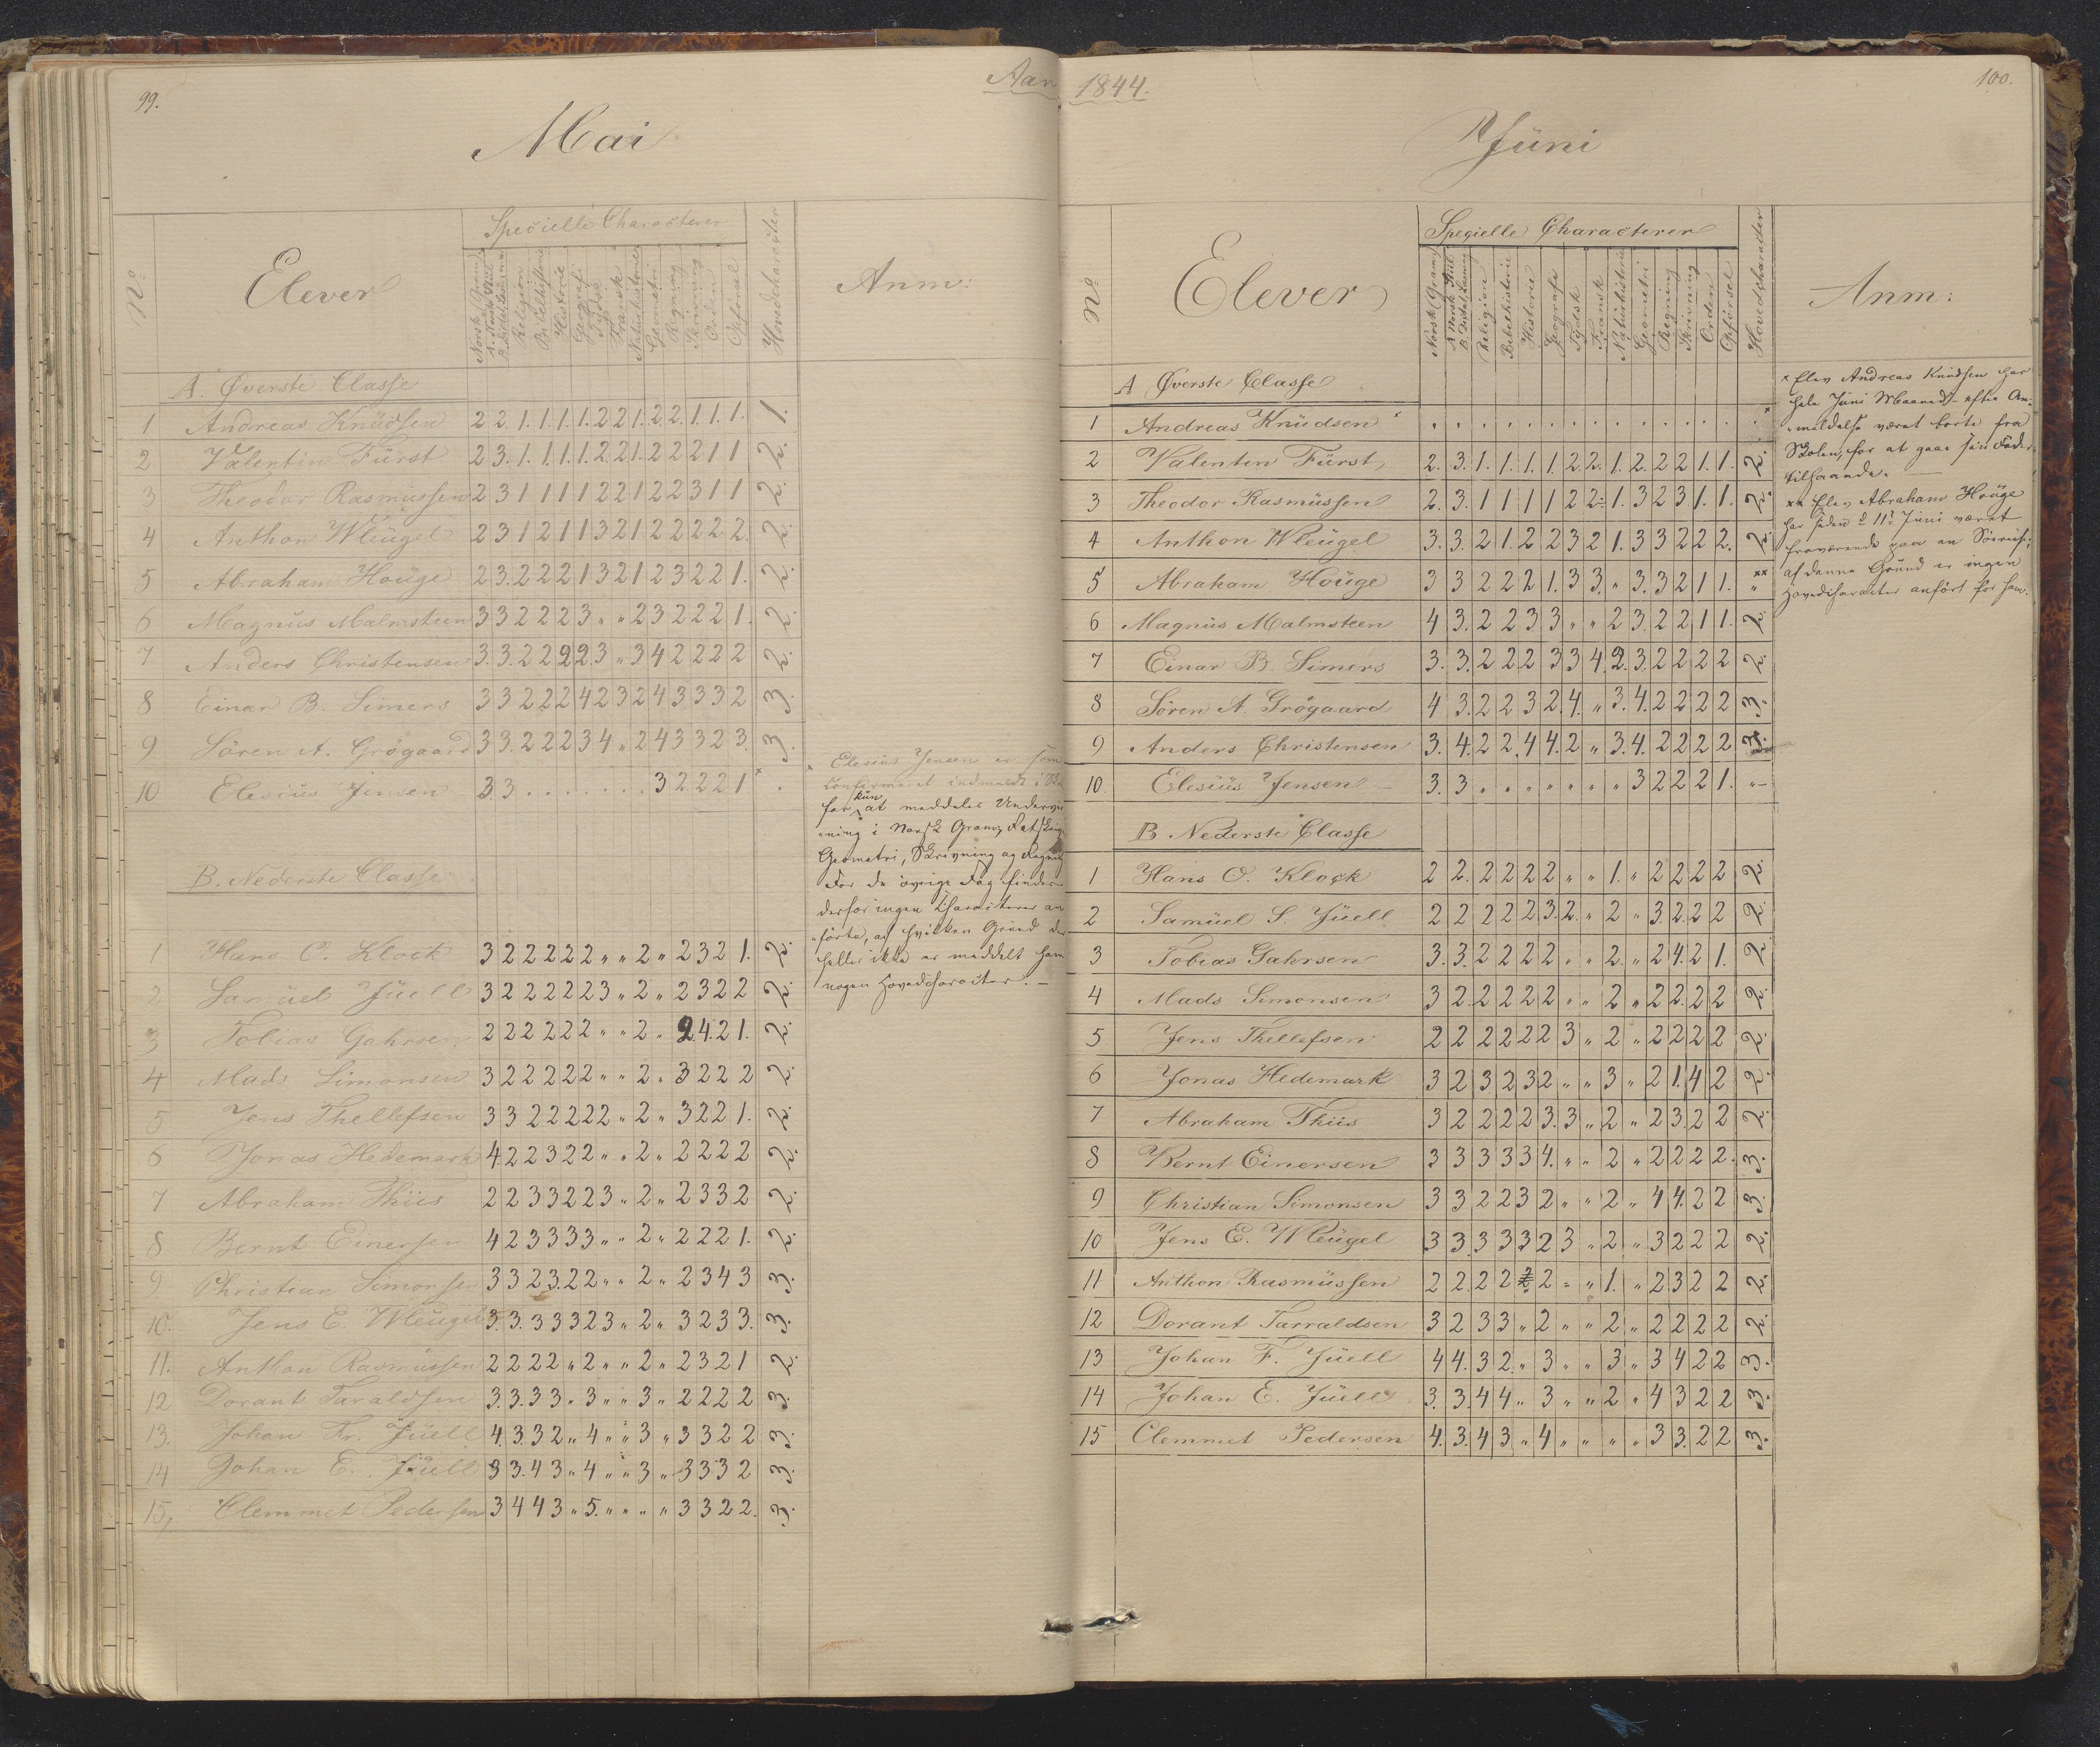 99.
Aar
Mai
No
Elever
Specielle Characterer
Norsk Gram.
A. Norsk Stiil
B. Indenadslæsning
Religion
Bibelhistorie
Historie
Geografi
Tydsk
Fransk
Naturhistorie
Geometri
Regning
Skrivning
Orden
Opførsel
Hovedcharacter
Anm:
A. Øverste Classe
1 Andreas Knüdsen 2 2. 1. 1. 1. 1. 2 2 1. 2 2. 1. 1. 1. 1.
2 Valentin Fürst 2 3. 1. 1. 1. 1. 2. 2 1. 2 2 2 1 1 2.
3 Theodor Rasmüssen 2 3 1 1 1 1 2 2 1 2 2 3 1 1 2.
4 Anthon Wleügel 2 3 1 2 1 1 3 2 1 2 2 2 2 2. 2.
5 Abraham Houge 2 3. 2 2 2 1 3 2 1 2 3 2 2 1. 2.
6 Magnüs Malmsteen 3 3 2 2 2 3 " " 2 3 2 2 2 1. 2.
7 Anders Christensen 3. 3. 2 2 2 2. 3 " 3 4 2 2 2 2 2.
8 Einar B. Simers 3 3 2 2 2 4 2 3 2 4 3 3 3 2 3.
9 Sören A. Grögaard 3 3. 2 2 2 3 4 " 2 4 3 3 2 3. 3.
10 Elesius Jensen 3. 3 . . . . . . . 3 2 2 2 1 × .
× Elesius Jensen er som
Confirmeret indmeldt i Sko
for kün at meddeles Undervis
ning i Norsk Gram, Retskriv
Geometri, Skrivning og Regning
For de øvrige Fag findes
derfor ingen Characterer an
førte, af hvilken Grund der
heller ikke er meddelt ham
nogen Hovedcharacter. –
B. Nederste Classe
1 Hans O. Klock 3 2 2 2 2 2 " " 2 " 2 3 2 1. 2.
2 Samüel Jüell 3 2 2 2 2 2 3 " 2 " 2 3 2 2 2.
3 Tobias Gahrsen 2 2 2 2 2 2 " " 2 " 2 4. 2 1. 2.
4 Mads Simonsen 3 2 2 2 2 2 " " 2 " 3 2 2 2 2.
5 Jens Thellefsen 3 3 2 2 2 2 2 " 2 " 3 2 2 1. 2.
6 Jonas Hedemark 4. 2 2 3 2 2 " " 2 " 2 2 2 2 2.
7 Abraham Thiis 2 2 3 3 2 2 3 " 2 " 2 3 3 2 2.
8 Bernt Einersen 4 2 3 3 3 3 " " 2 " 2 2 2 1. 2.
9 Christian Simonsen 3 3 2 3. 2 2 " " 2 " 2 3 4 3 3.
10. Jens E. Wleugel 3. 3. 3 3 3 2 3 " 2 " 3 2 3 3. 3.
11. Anthon Rasmüssen 2 2 2 2 " 2 " " 2 " 2 3 2 1 2.
12 Dorant Taraldsen 3. 3. 3 3 " 3 " " 3 " 2 2 2 2 3.
13. Johan Fr. Jüell 4. 3 3 2 " 4 " " 3 " 3 3 2 2 3.
14 Johan E. Jüell 3 3. 4 3 " 4 " " 3 " 3 3 3 2 3.
15, Clemmet Pedersen 3 4 4 3 " 5. " " " " 3 3 2 2. 3.
1844.
100.
Jüni
No
Elever
Specielle Characterer
Norsk Gram.
A Norsk Stiil
B. Indenadslæsning
Religion
Bibelhistorie
Historie
Geografi
Tydsk
Fransk
Natürhistorie
Geometri
Regning
Skrivning
Orden
Opførsel
Hovedcharacter
Anm:
A Øverste Classe
1 Andreas Knüdsen × . . . . . . . . . . . . . . ×
2 Valentin Fürst 2. 3. 1. 1. 1. 1. 2 2. 1. 2. 2 2 1. 1. 2.
3 Theodor Rasmüssen 2. 3. 1 1 1 1 2 2 1. 3 2 3 1. 1. 2.
4 Anthon Wleügel 3. 3. 2 1. 2 2 3 2 1. 3 3 2 2 2. 2.
5 Abraham Hoüge 3 3 2 2 2 1. 3 3. " 3. 3 2 1 1. ×× "
6 Magnüs Malmsteen 4 3. 2 2 3 3 " " 2 3. 2 2 1 1. 2.
7 Einar B Simers 3. 3. 2 2 2 3 3 4. 2. 3. 2 2 2 2 2.
8 Sören A. Grögaard 4 3. 2 2 3 2. 4. " 3. 4. 2 2 2 2 3.
9 Anders Christensen 3. 4. 2 2. 4 4. 2 " 3. 4. 2 2 2 2 3.
10. Elesiüs Jensen 3. 3 " " " " " " " 3 2 2 2 1. "
× Elev Andreas Knudsen har
hele Juni Maaned efter An
meldelse været borte fra
Skolen, for at gaae sin Fader
tilhaande. –
×× Elev Abraham Houge
har siden d 11te Juni været
fraværende paa en Søereise;
af denne Grund er ingen
Hovedcharacter anført for ham.
B. Nederste Classe
1 Hans O. Klock 2 2. 2 2 2 2 " " 1. " 2 2 2 2 2.
2 Samüel S. Jüell 2 2 2 2 2 3. 2. " 2 " 3. 2. 2 2 2.
3 Tobias Gahrsen 3. 3. 2 2 2 2 " " 2. " 2 4. 2 1. 2
4 Mads Simonsen 3 2. 2 2 2 2 " " 2 " 2 2. 2 2 2.
5 Jens Thellefsen 2 2 2 2 2 2 3 " 2 " 2 2 2 2 2.
6 Jonas Hedemark 3 2 3 2 3 2 " " 3 " 2 1. 4 2 2.
7 Abraham Thiis 3 2 2 2 2 3. 3 " 2 " 2 3. 2 2 2.
8 Bernt Einersen 3 3 3 3 3 4. " " 2 " 2 2 2 2. 3.
9 Christian Simonsen 3 3 2 2 3 2 " " 2 " 4 4. 2 2 3.
10 Jens E. Wleügel 3 3. 3 3 3 2 3 " 2 " 3 2 2 2 2.
11 Anthon Rasmüssen 2 2. 2 2 2 2 " " 1. " 2 3 2 2 2.
12 Dorant Tarraldsen 3 2 3 3 " 2 " " 2 " 2 2 2 2 2.
13 Johan F. Jüell 4 4. 3 2. " 3 " " 3 " 3 4 2 2 3.
14 Johan E. Jüell 3. 3. 4 4 " 3 " " 2 " 4 3 2 2 3.
15 Clemmet Pedersen 4. 3. 4 3 " 4 " " " " 3 3. 2 2 3.